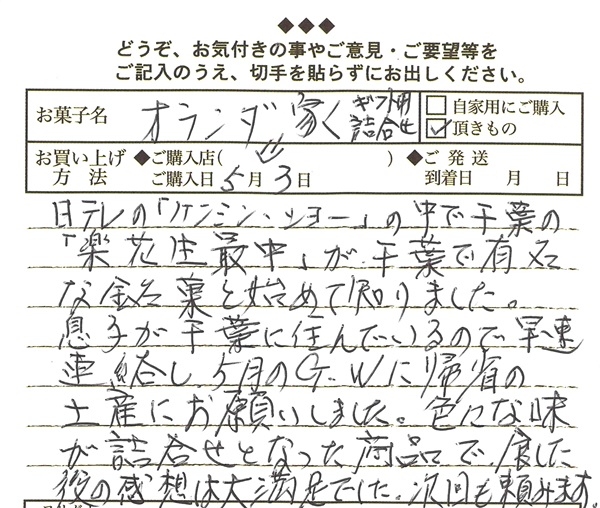 ◆◆◆
どうぞ、お気付きの事やご意見・ご要望等を
ご記入のうえ、切手を貼らずにお出しください。
お菓子名 オランダ家 ギフト用詰合せ □自家用にご購入 ☑頂きもの
お買い上げ方法 ◆ご購入店( ) ご購入日 5月3日 ◆ご発送 到着日 月 日
日テレの「ケンミン・ショー」の中で千葉の
「楽花生最中」が千葉で有名
な銘菓と始めて知りました。
息子が千葉に住んでいるので早速
連絡し、5月のG.Wに帰省の
土産にお願いしました。色々な味
が詰合せとなった商品で食した
後の感想は大満足でした。次回も頼みます。